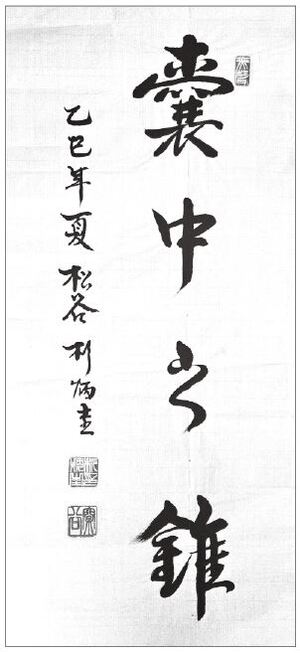 囊中之錐
乙巳年夏 松谷 炳圭